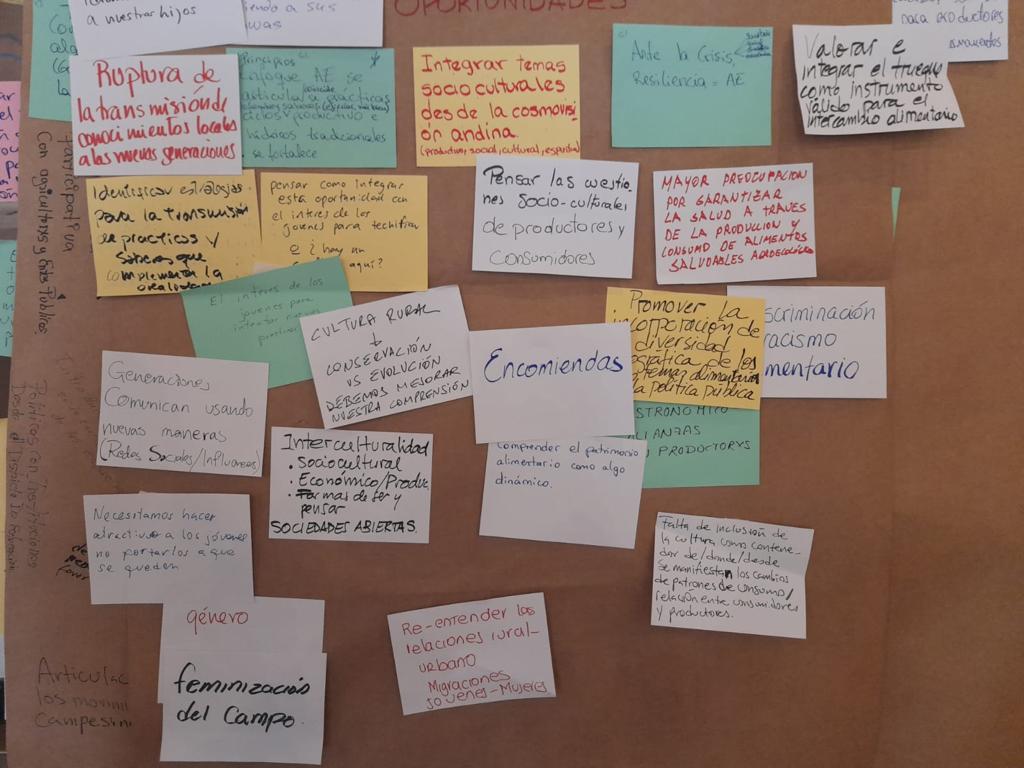 OPORTUNIDADES
a nuestrar hijos
para PRODUCTORES
Ruptura de
la transmisión de
conocimientos locales
a las nuevas generaciones
Principios
enfoque AE se
articula a prácticas
ciclos productivo e
hídricos tradicionales
se fortalece
Integrar temas
socioculturales
desde la cosmovisi
ón andina
(productivo, social, cultural, espiritual)
Ante la Crisis,
Resiliencia = AE
Valorar e
integrar el trueque
como instrumento
válido para el
intercambio alimentario
Identificar estrategias
para la transmisión
de practicas y
saberes que
complementen la
oralidad
pensar como integrar
esta oportunidad con
el interes de los
jovenes para tecnificar
e ¿ hay un
aquí?
Pensar las cuestio
nes socio-culturales
de productores y
consumidores
MAYOR PREOCUPACION
POR GARANTIZAR
LA SALUD A TRAVES
DE LA PRODUCION Y
CONSUMO DE ALIMENTOS
SALUDABLES AGROECOLÓGICOS
El interes de los
jovenes para
CULTURA RURAL
↓
CONSERVACIÓN
VS EVOLUCIÓN
DEBEMOS MEJORAR
NUESTRA COMPRENSIÓN
Encomiendas
Promover la
incorporación de
diversidad
de los
sistemas alimentarios
la política pública
scriminación
racismo
mentario
STRONOMICO
ALIANZAS
PRODUCTORYS
Generaciones
Comunican usando
nuevas maneras
(Redes Sociales/Influences)
Interculturalidad
• Sociocultural
• Económico/Produc.
• Formas de ser y
pensar
SOCIEDADES ABIERTAS.
comprender el patrimonio
alimentario como algo
dinámico.
Necesitamos hacer
atractivo a los jóvenes
no portarlos a que
se queden
Falta de inclusión de
la cultura como contene-
dor de/donde/desde
se manifiestan los cambios
de patrones de consumo/
relación entre consumidores
y productores.
género
feminización
del Campo.
Re-entender las
relaciones rural-
urbano
Migraciones
Jóvenes-Mujeres
participativa
Con agricultores y Entes Públicos
Articular
los movimi
Campesini